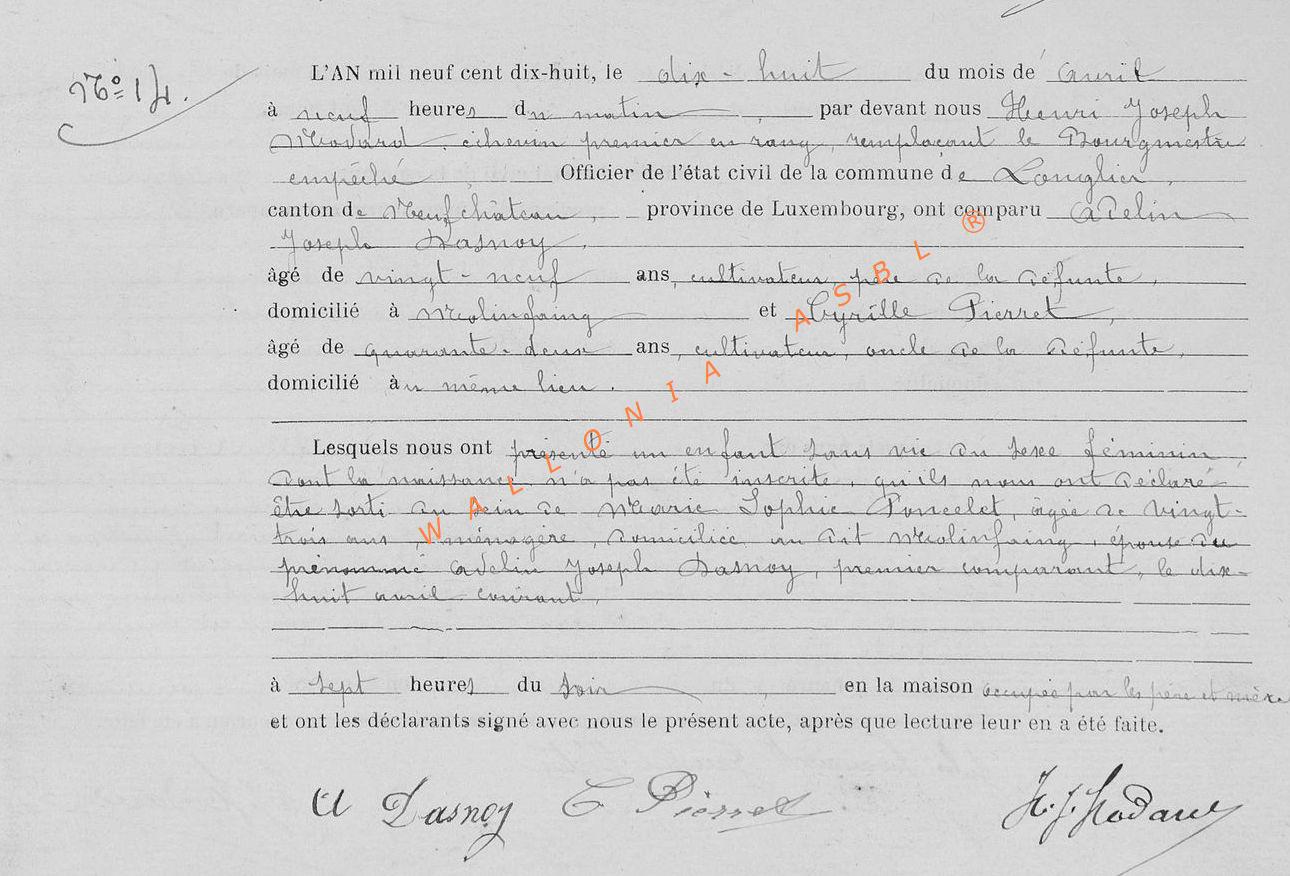 N° 14.
L'AN mil neuf cent dix-huit, le dix-huit du mois de avril
à neuf heures du matin, par devant nous Henri Joseph
Modard, échevin premier en rang, remplaçant le Bourgmestre
empêché Officier de l'état civil de la commune de Longlier,
canton de Neufchâteau, province de Luxembourg, ont comparu Adelin
Joseph Dasnoy,
âgé de vingt-neuf ans, cultivateur, père de la défunte,
domicilié à Molinfaing et Cyrille Pierret,
âgé de quarante-deux ans, cultivateur, oncle de la défunte,
domicilié au même lieu.
Lesquels nous ont présenté un enfant sans vie du sexe féminin
dont la naissance n'a pas été inscrite, qu'ils nous ont déclaré
être sorti du sein de Marie Sophie Poncelet, âgée de vingt-
trois ans, ménagère, domiciliée au dit Molinfaing, épouse du
prénommé Adelin Joseph Dasnoy, premier comparant, le dix-
huit avril courant,
à sept heures du soir, en la maison occupée par les père et mère
et ont les déclarants signé avec nous le présent acte, après que lecture leur en a été faite.
A Dasnoy C Pierret H. J. Modard
WALLONIA ASBL ®